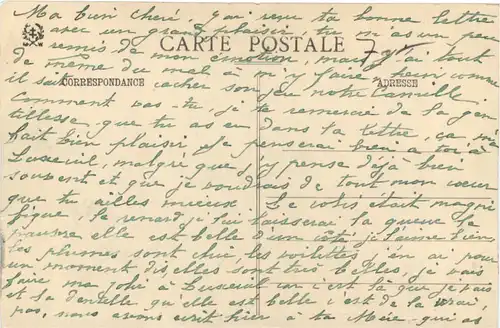 Ma bien chère, j'ai reçu ta bonne lettre
avec un grand plaisir, tu m'as un peu
remis de mon émotion, mais j'ai tout
CARTE POSTALE
de même du mal à m'y faire hein comme
il sait cacher son jeu notre Camille.
CORRESPONDANCE
ADRESSE
Comment vas-tu, je te remercie de la gen
tillesse que tu as eu dans ta lettre, ça me
fait bien plaisir. Je penserai bien à toi à
Luxeuil, malgré que j'y pense déjà bien
souvent et que je voudrais de tout mon cœur
que tu ailles mieux. Le colis était magni
fique le renard je lui laisserai la queue la
elle est belle d'un côté, je l'aime bien
les plumes sont chic, les voilettes j'en ai pour
un moment, elles sont très belles, je vais
faire ma jolie à Luxeuil car c'est là que je vais
et la dentelle qu'elle est belle c'est de la vraie,
nous avons écrit hier à ta Mée, qui as